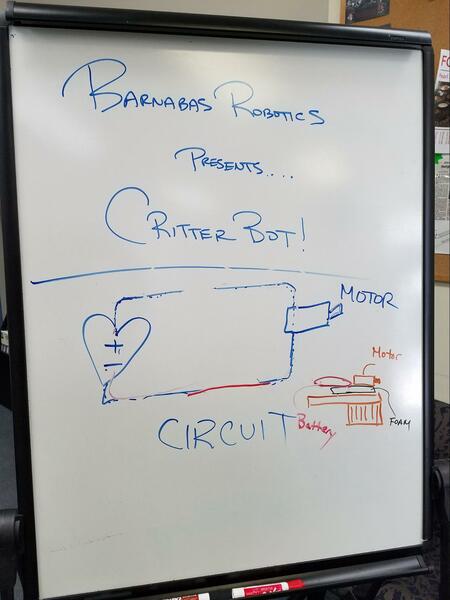 BARNABAS ROBOTICS
PRESENTS....
CRITTER BOT!
MOTOR
+
-
Motor
Battery
FOAM
CIRCUIT